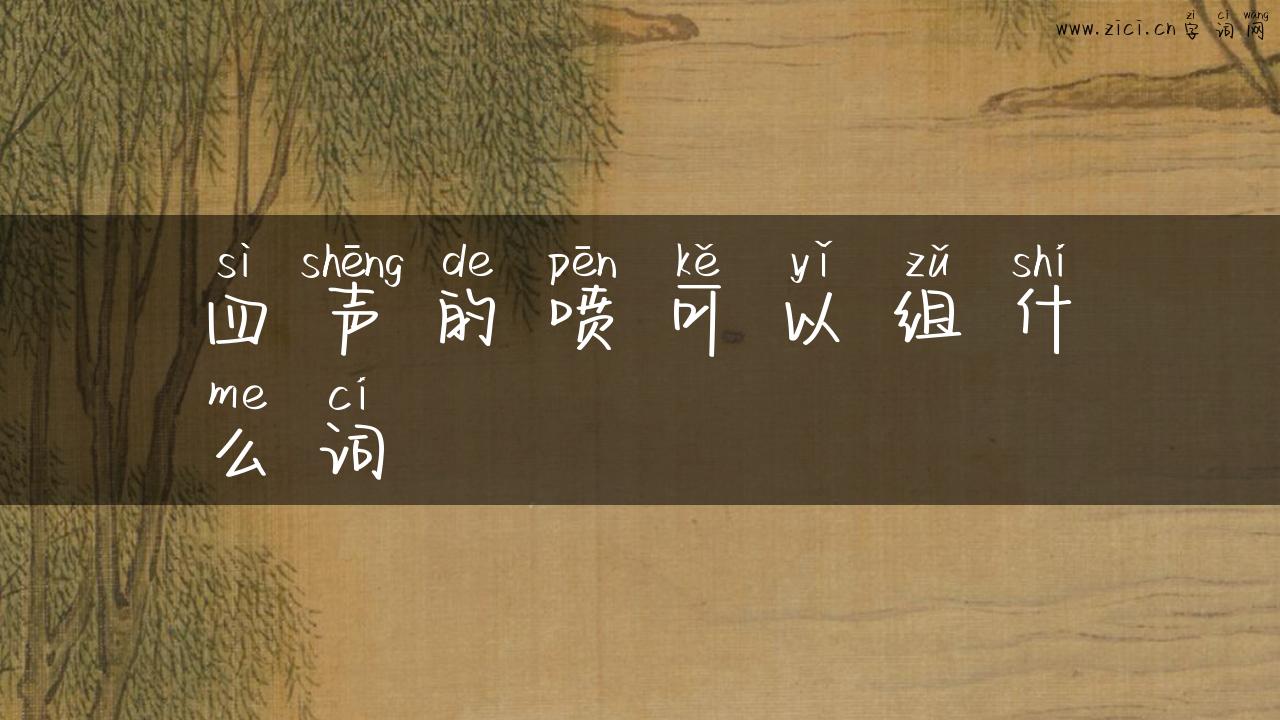 zì cí wǎng
www.zici.cn 字词网
sì shēng de pēn kě yǐ zǔ shí
四声的喷可以组什
me cí
么词